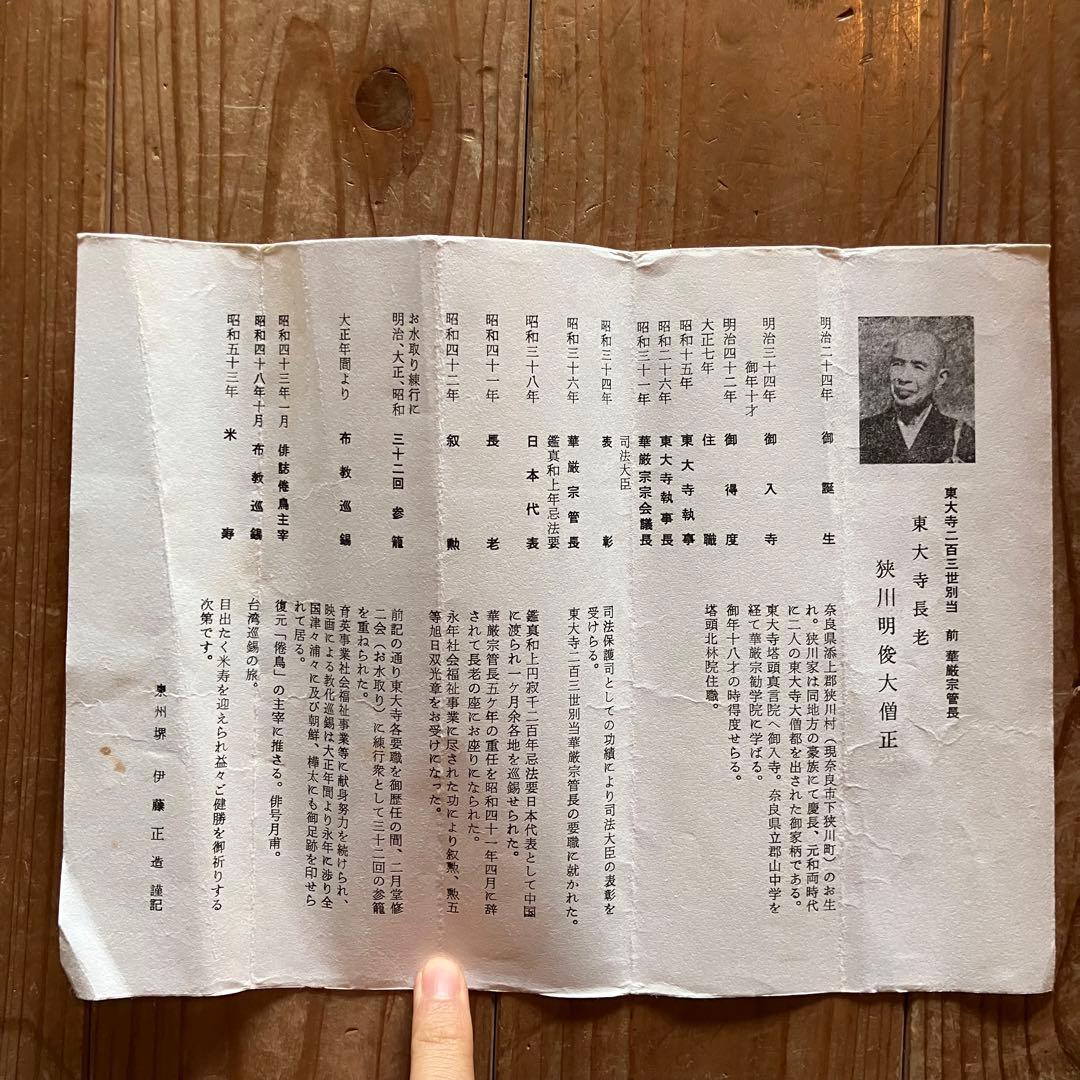 東大寺二百三世別当　前　華厳宗管長
東大寺長老
狭川明俊大僧正
明治二十四年　御誕生　奈良県添上郡狭川村（現奈良市下狭川町）のお生
れ。狭川家は同地方の豪族にて慶長、元和両時代
に二人の東大寺大僧都を出された御家柄である。
明治三十四年　御入寺　東大寺塔頭真言院へ御入寺。奈良県立郡山中学を
御年十才　経て華厳宗勧学院に学ばる。
明治四十二年　御得度　御年十八才の時得度せらる。
大正七年　住職　塔頭北林院住職。
昭和十五年　東大寺執事
昭和二十六年　東大寺執事長
昭和三十一年　華厳宗宗会議長
司法大臣
昭和三十四年　表彰　司法保護司としての功績により司法大臣の表彰を
受けらる。
昭和三十六年　華厳宗管長　東大寺二百三世別当華厳宗管長の要職に就かれた。
鑑真和上年忌法要
昭和三十八年　日本代表　鑑真和上円寂千二百年忌法要日本代表として中国
に渡られ一ケ月余各地を巡錫せられた。
昭和四十一年　長老　華厳宗管長五ケ年の重任を昭和四十一年四月に辞
されて長老の座にお座りになられた。
昭和四十二年　叙勲　永年社会福祉事業に尽された功により叙勲、勲五
等旭日双光章をお受けになった。
お水取り練行に
明治、大正、昭和　三十二回参籠　前記の通り東大寺各要職を御歴任の間、二月堂修
二会（お水取り）に練行衆として三十二回の参籠
を重ねられた。
大正年間より　布教巡錫　育英事業社会福祉事業等に献身努力を続けられ、
映画による教化巡錫は大正年間より永年に渉り全
国津々浦々に及び朝鮮、樺太にも御足跡を印せら
れて居る。
昭和四十三年一月　俳誌倦鳥主宰　復元「倦鳥」の主宰に推さる。俳号月甫。
昭和四十八年十月　布教巡錫　台湾巡錫の旅。
昭和五十三年　米寿　目出たく米寿を迎えられ益々ご健勝を御祈りする
次第です。
泉州堺　伊藤正造　謹記